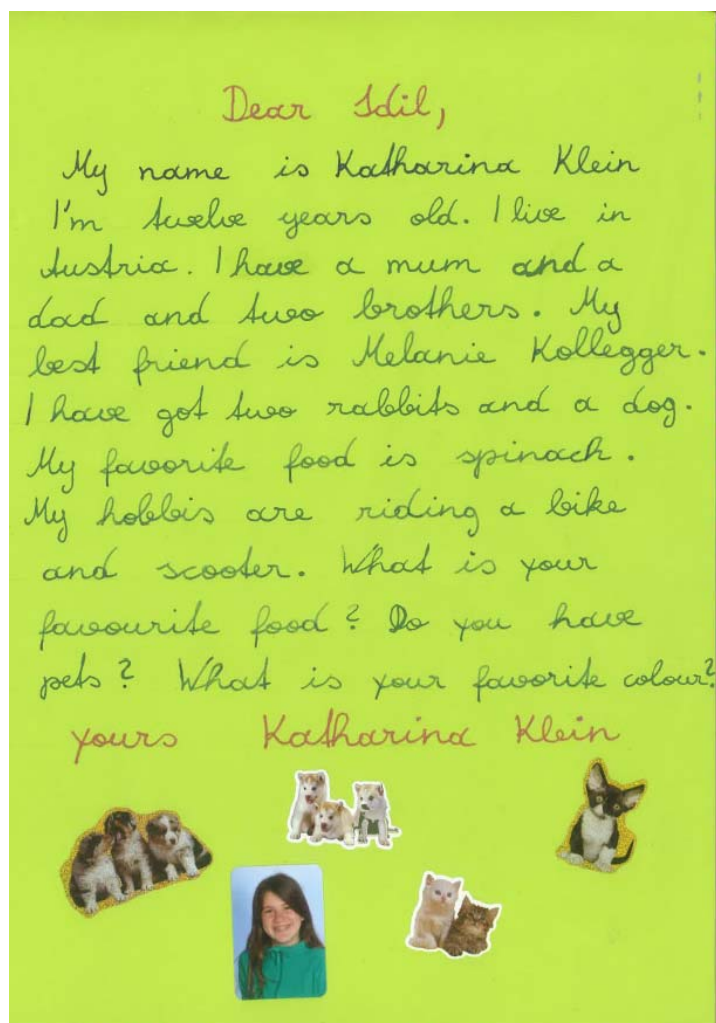 Dear Idil,
My name is Katharina Klein
I'm twelve years old. I live in
Austria. I have a mum and a
dad and two brothers. My
best friend is Melanie Kollegger.
I have got two rabbits and a dog.
My favorite food is spinach.
My hobbis are riding a bike
and scooter. What is your
favourite food? Do you have
pets? What is your favorite colour?
yours Katharina Klein